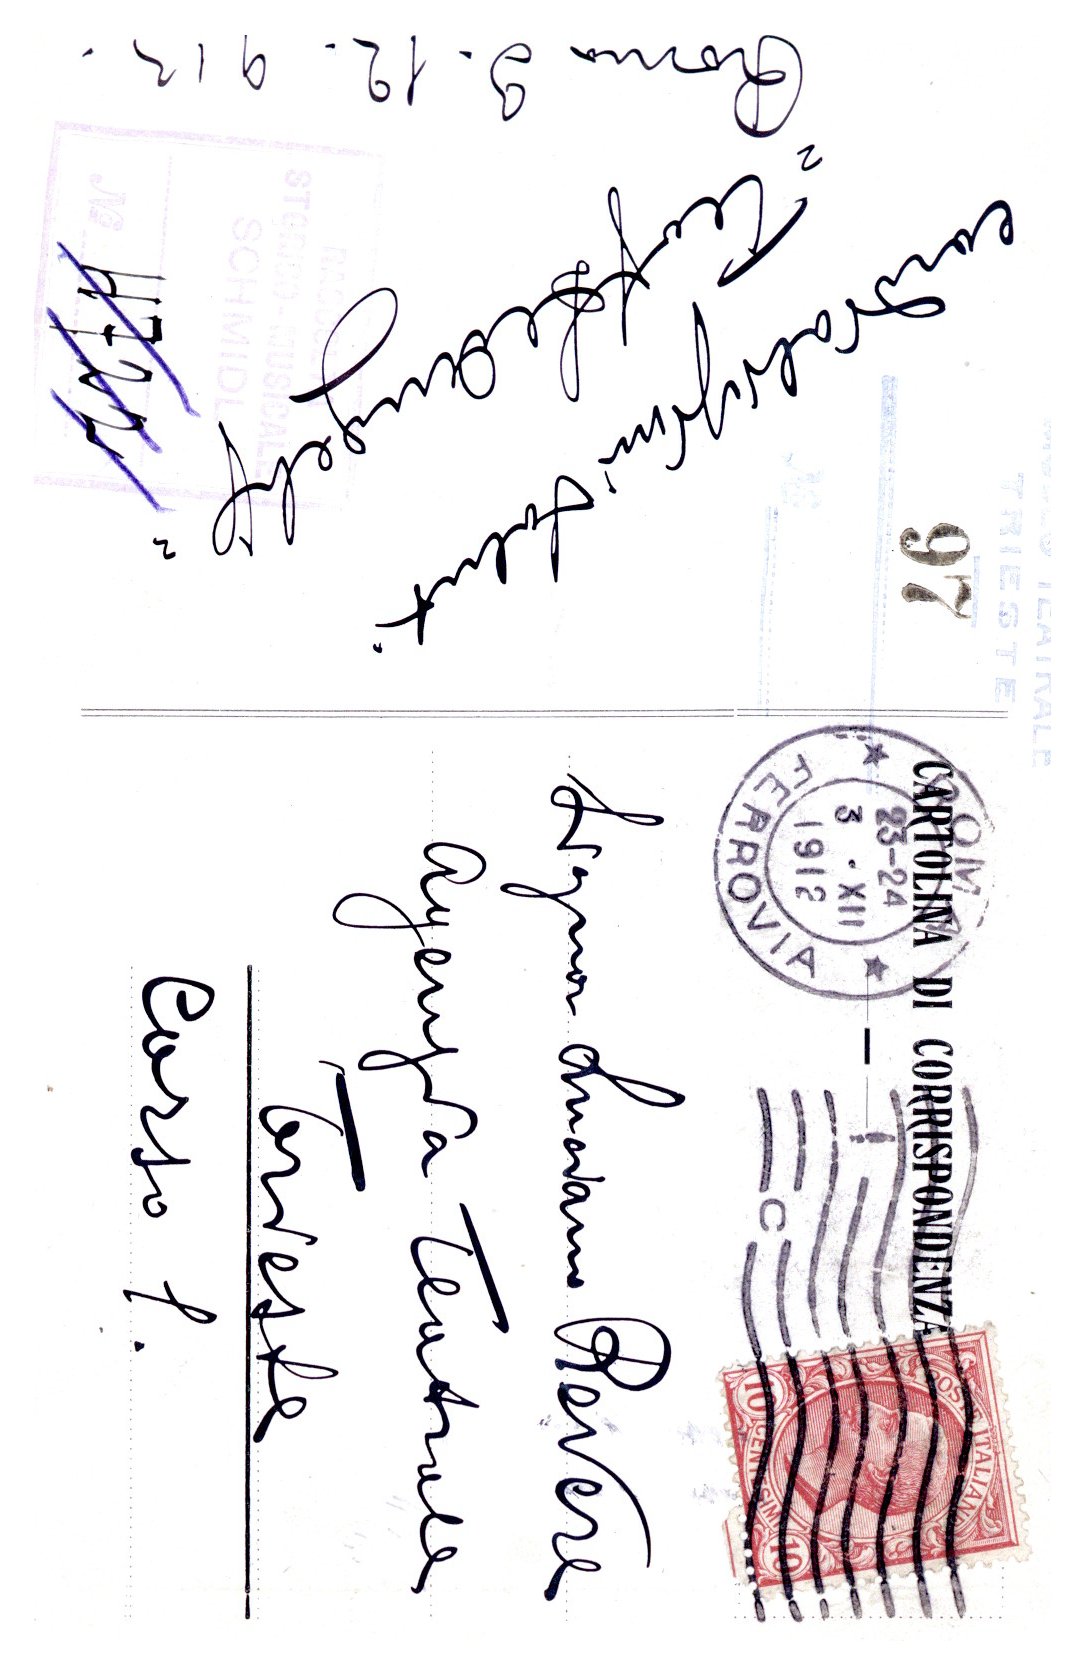 Roma 3. 12. 912.
cordialissimi salut.
"Teofilo De Angelis"
STORICO-MUSICALE
SCHMIDL
No
TEATRALE
TRIESTE
97
CARTOLINA DI CORRISPONDENZA
ROMA
23-24
3 . XII
1912
FERROVIA
C
POSTE ITALIANE
10 CENTESIMI 10
Signor Amodani Revere
Agenzia Teatrale
Trieste
Corso 1.